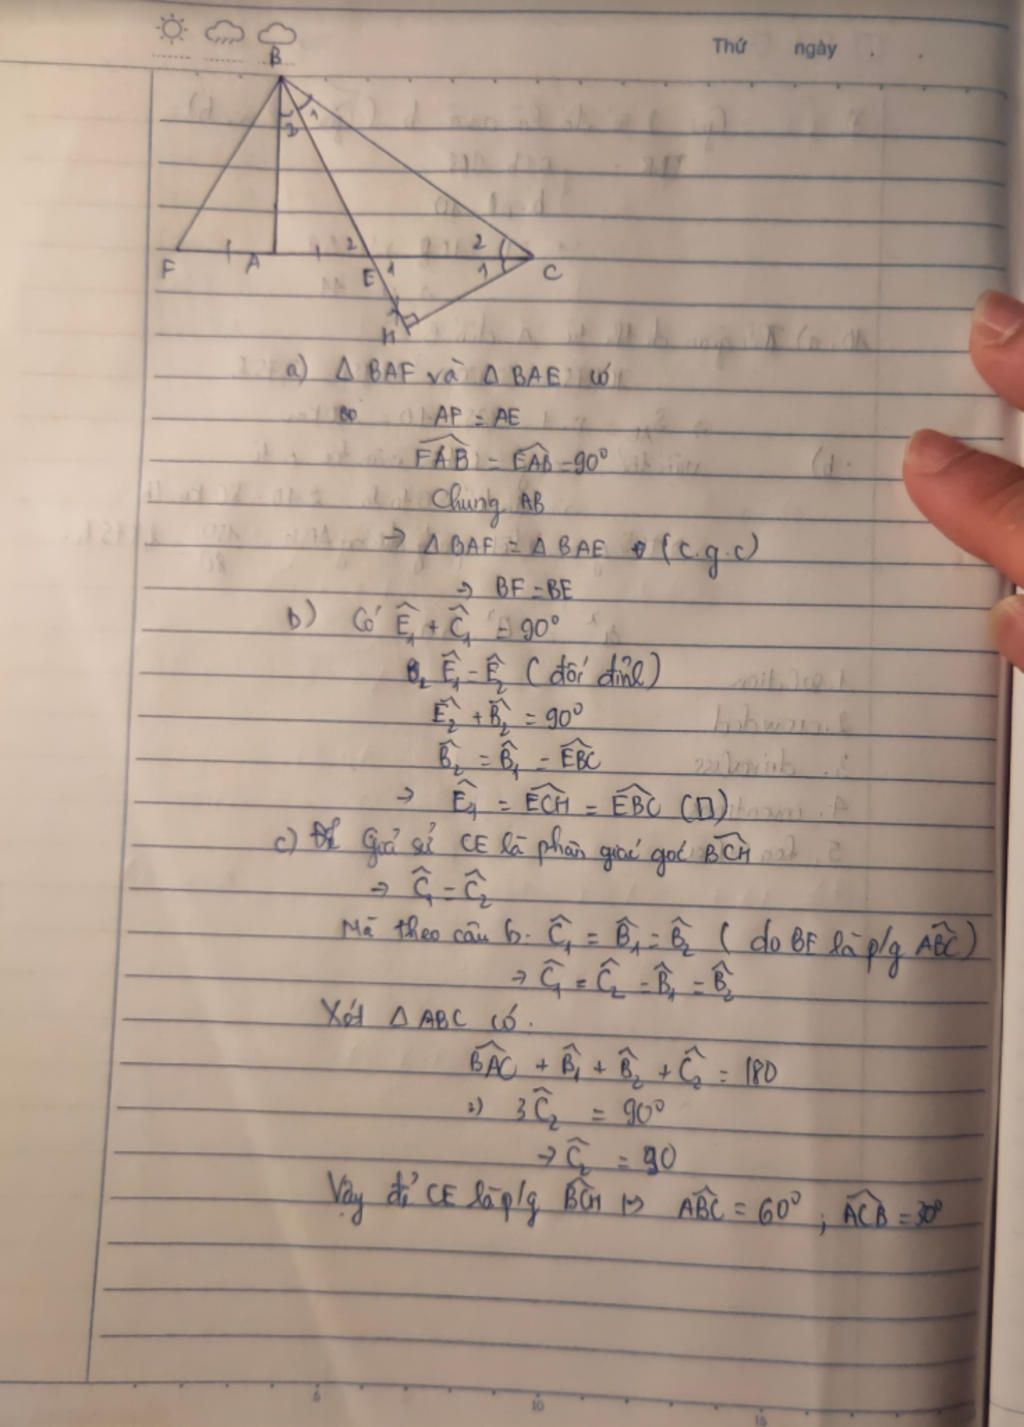 Thứ ngày
B
1
2
F A 2 E 1 2 1 C
H
a) Δ BAF và Δ BAE có
AF = AE
FAB = EAB = 90°
Chung AB
→ Δ BAF = Δ BAE (c.g.c)
→ BF = BE
b) Có Ê₁ + Ĉ₁ = 90°
Ê₁ = Ê₂ (đối đỉnh)
Ê₂ + B̂₂ = 90°
B̂₂ = B̂₁ = EBC
→ Ê₁ = ECH = EBC (□)
c) Giả sử CE là phân giác góc BCH
→ Ĉ₁ = Ĉ₂
Mà theo câu b. Ĉ₁ = B̂₁ = B̂₂ ( do BE là p/g ABC)
→ Ĉ₁ = Ĉ₂ = B̂₁ = B̂₂
Xét Δ ABC có.
BAC + B̂₁ + B̂₂ + Ĉ₂ = 180
→ 3Ĉ₂ = 90°
→ Ĉ₂ = 90
Vậy để CE là p/g BCH ABC = 60° ; ACB = 30°
6 10 15